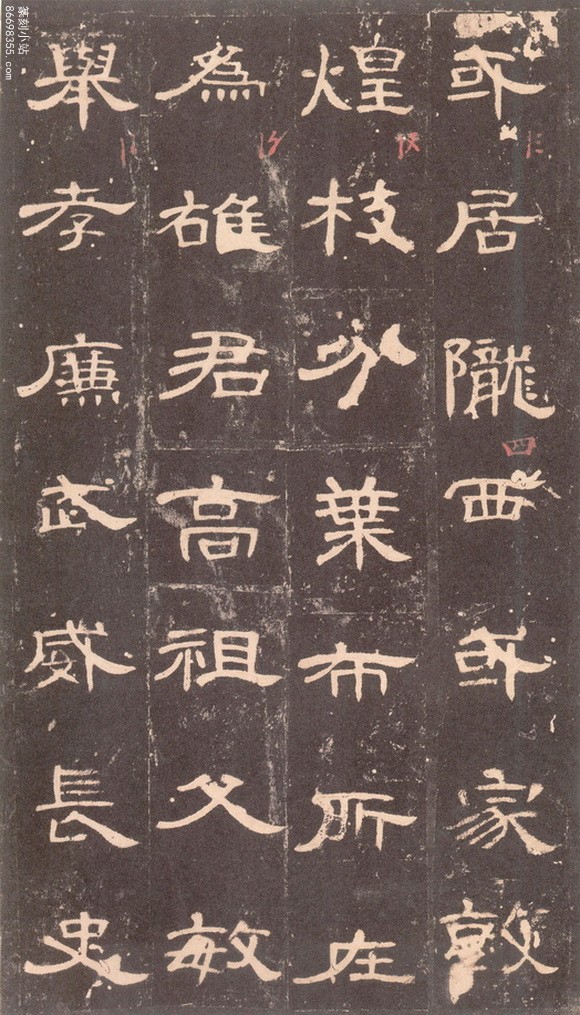 或居隴西或家敦
煌枝分葉布所在
為雄君高祖父敏
舉孝廉武威長史
四
篆刻小站
86698355.com